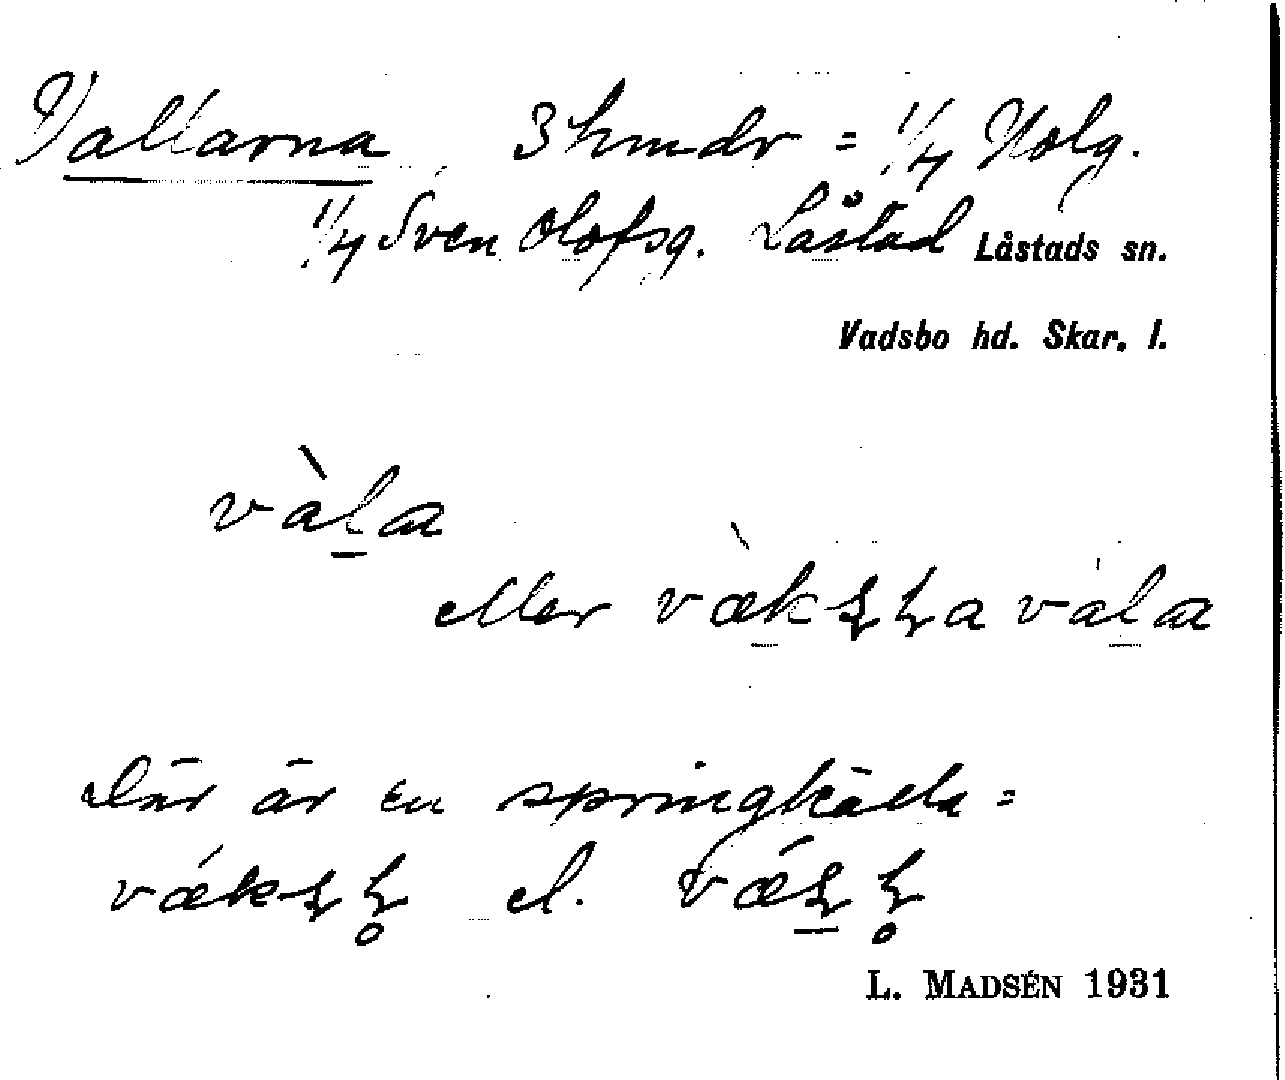 Vallarna, 3 hmdr = 1/4 Holg.
1/4 Sven Olofsg. Låstad Låstads sn.
Vadsbo hd. Skar. l.
vàla
eller væ̀k a vala
Där är en springkälla =
el.
L. MADSÉN 1931